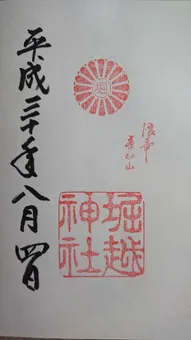 浪華
茶臼山
堀
堀越
神社
平成三十年八月四日